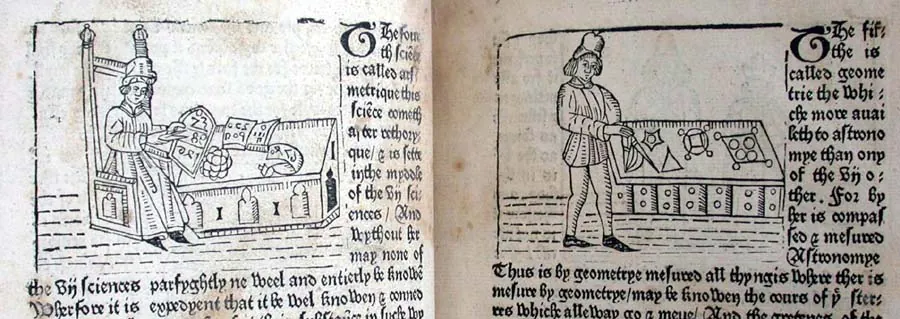 The four
th sciēce
is called ars
metrique this
sciēce cometh
after rethory
que/ & is sette
in the myddle
of the vij sci
ences / And
wythout her
may none of
the vij sciences parfyghtly ne weel and entierly be knowē
Wherfore it is expedyent that it be wel knowen & conned
The fif-
the is
called geome
trie the whi-
che more auai
leth to astrono
mye than ony
of the vij o-
ther. For by
her is compas
sed & mesured
Astronomye
Thus is by geometrye mesured all thyngis where ther is
mesure by geometrye/may be knowen the cours of yͤ ster-
res whiche alleway go & meue/ And the gretnes of the